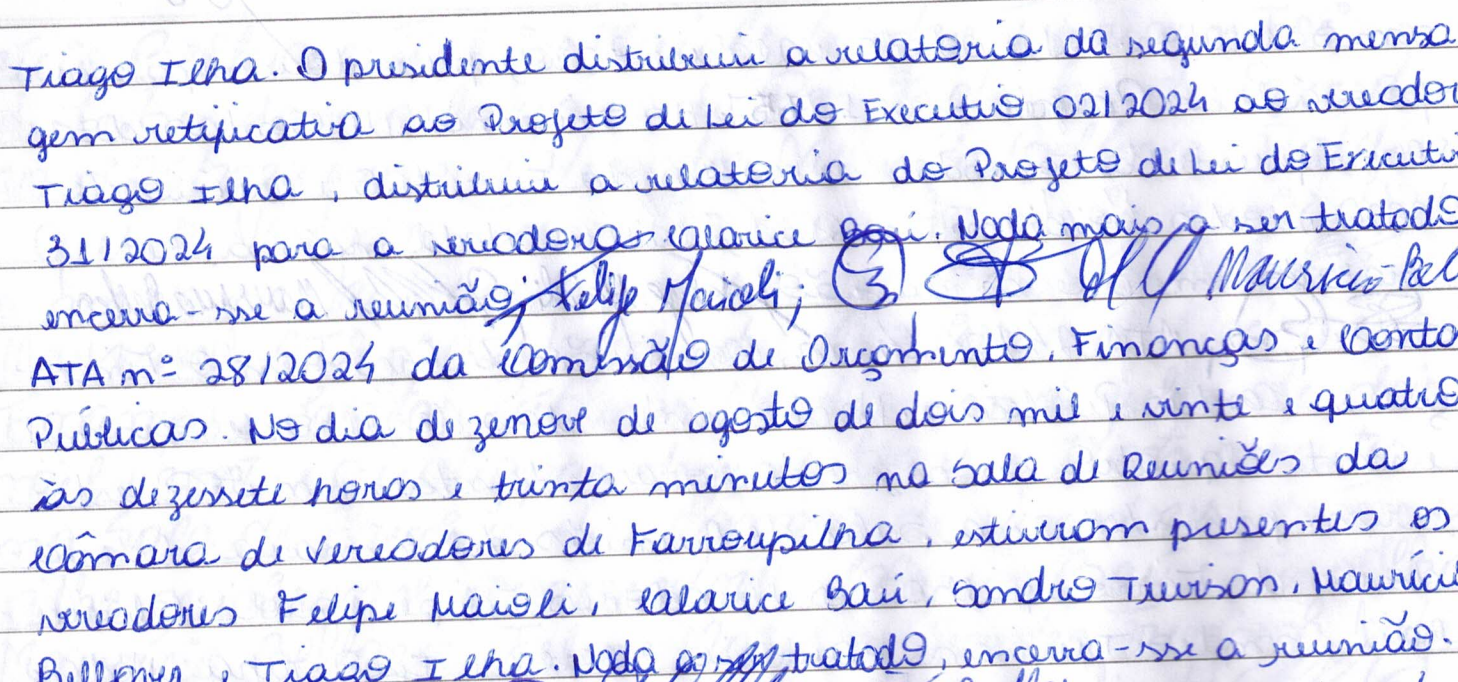 Tiago Ilha. O presidente distribuiu a relatoria da segunda mensa
gem retificativa ao Projeto de Lei do Executivo 02/2024 ao vereador
Tiago Ilha, distribuiu a relatoria do Projeto de Lei do Executi
31/2024 para a vereadora Clarice Baú. Nada mais a ser tratado
encerra-se a reunião; Felipe Maioli; Maurício Bel
ATA nº 28/2024 da Comissão de Orçamento, Finanças e Conta
Públicas. No dia dezenove de agosto de dois mil e vinte e quatro
às dezessete horas e trinta minutos na Sala de Reuniões da
Câmara de Vereadores de Farroupilha, estiveram presentes os
vereadores Felipe Maioli, Clarice Baú, Sandro Trevisan, Maurício
Bellaver e Tiago Ilha. Nada tratado, encerra-se a reunião.